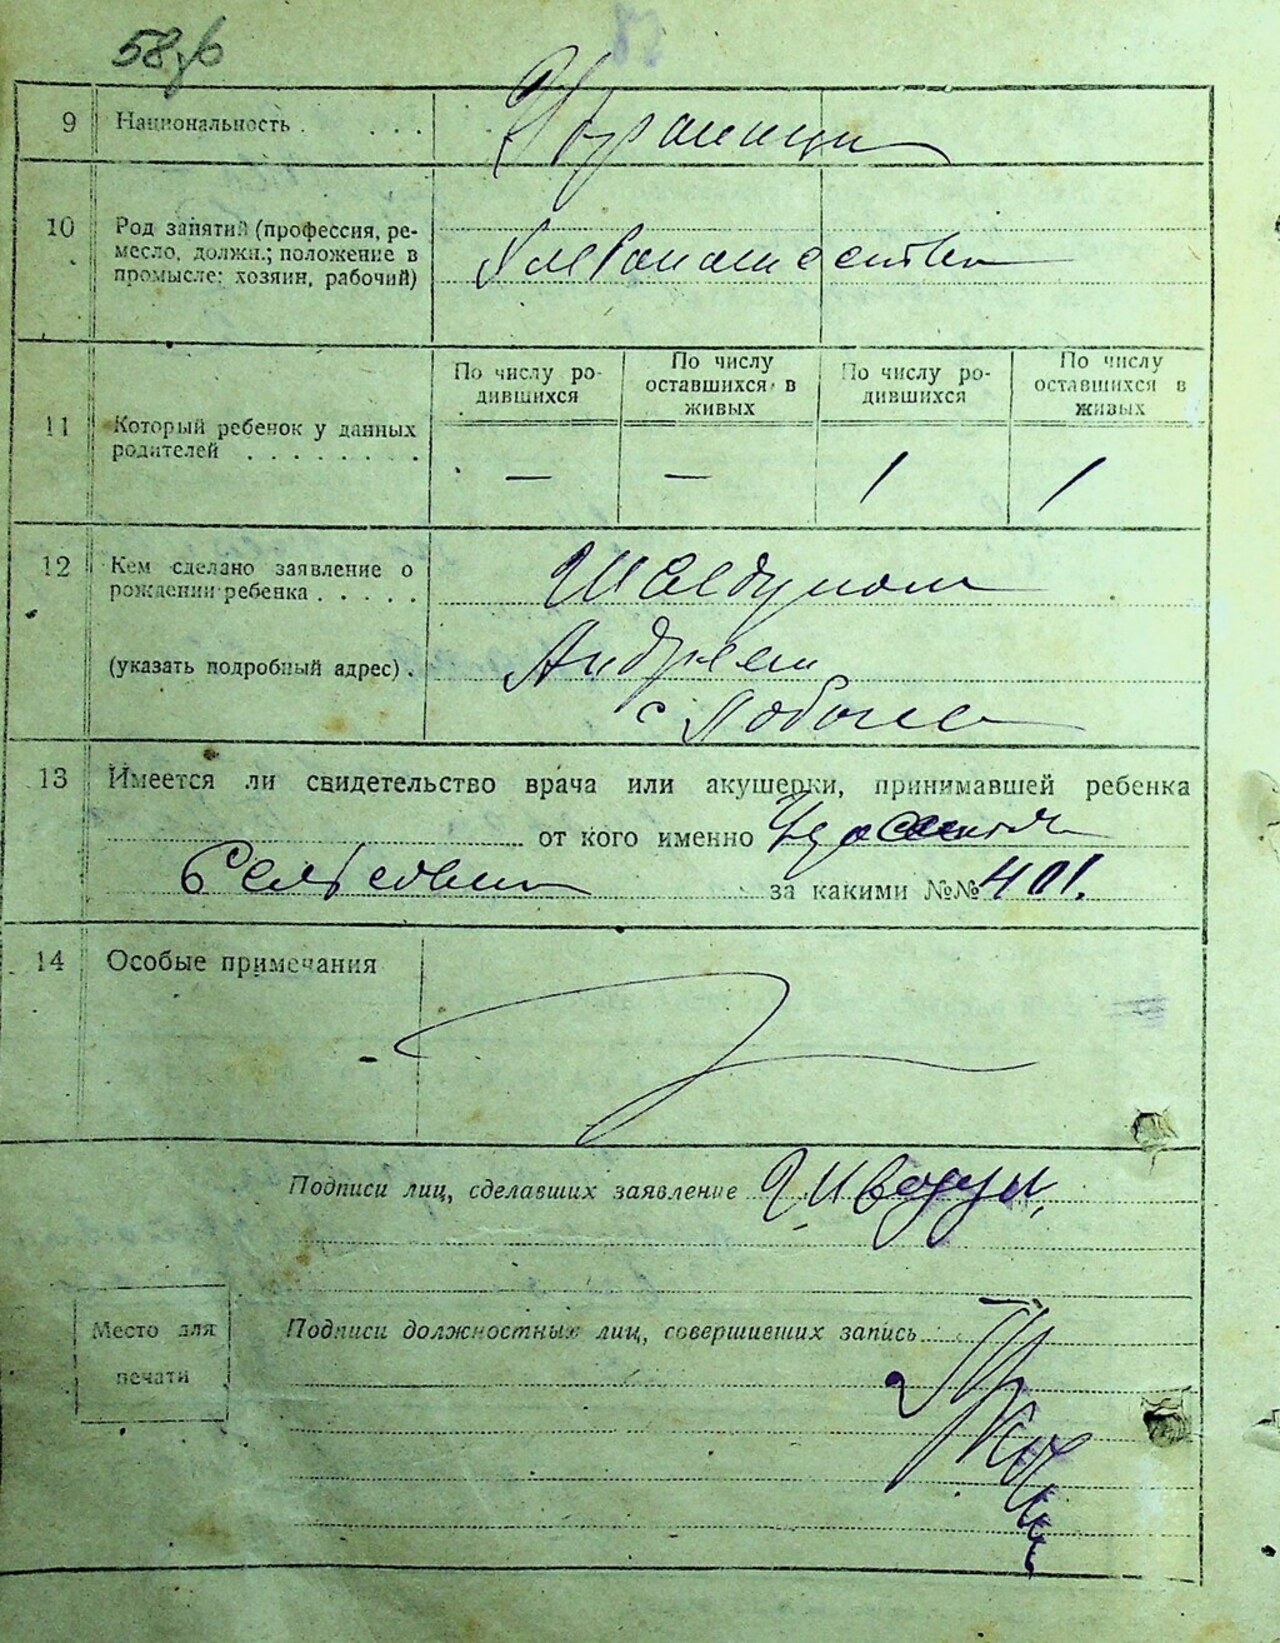 58
9 Национальность . . . . Украинцы
10 Род занятий (профессия, ре-
месло, должн.; положение в
промысле: хозяин, рабочий)
Хлебопашество
По числу ро-
дившихся
По числу
оставшихся в
живых
По числу ро-
дившихся
По числу
оставшихся в
живых
11 Который ребенок у данных
родителей . . . . . . . .
— — 1 1
12 Кем сделано заявление о
рождении ребенка . . . . .
(указать подробный адрес) .
Андреем
с
13 Имеется ли свидетельство врача или акушерки, принимавшей ребенка
от кого именно
за какими №№ 401.
14 Особые примечания
Подписи лиц, сделавших заявление
Место для
печати
Подписи должностных лиц, совершивших запись